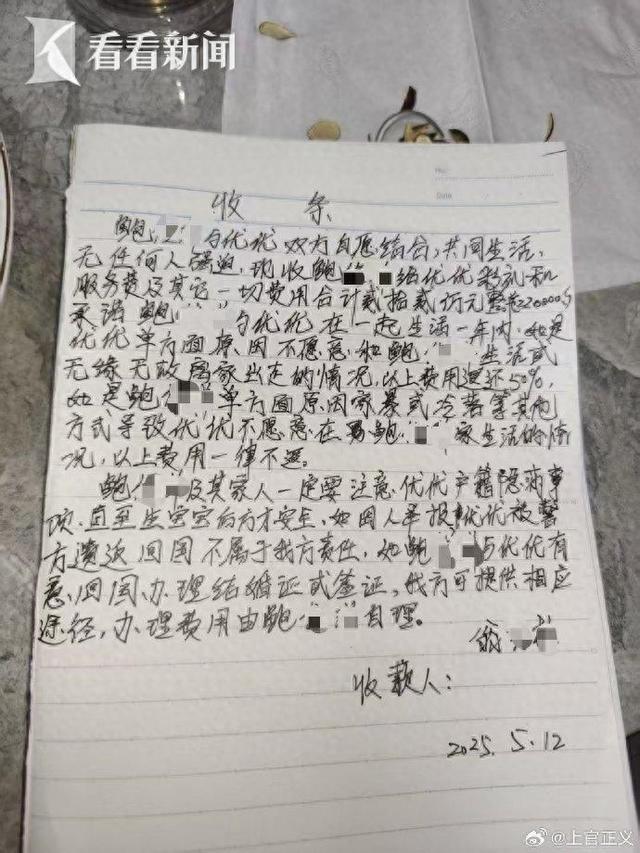 看看新闻
No:
Date
收 条
鲍 与优优双方自愿结合,共同生活,
无任何人强迫,现收鲍 给优优彩礼和
服务费及其它一切费用合计贰拾贰万元整
承诺鲍 与优优在一起生活一年内,如是
优优单方面原因不愿意和鲍 生活或
无缘无故离家出走的情况,以上费用退还50%,
如是鲍 单方面原因家暴或冷落等其他
方式导致优优不愿意在 鲍 家生活的情
况,以上费用一律不退。
鲍 及其家人一定要注意优优户籍隐私事
项,直至生宝宝后方才安全,如因人举报优优被警
方遣返回国不属于我方责任,如鲍 与优优有
意回国办理结婚证或签证,我方可提供相应
途径,办理费用由鲍 自理。
收款人:
2025.5.12
@上官正义